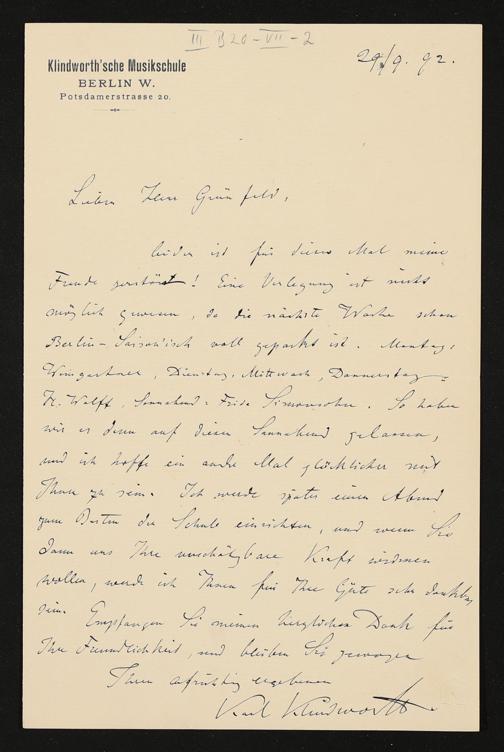 III B 20 - VII - 2
29/9. 92.
Klindworth'sche Musikschule
BERLIN W.
Potsdamerstrasse 20.
Lieber Herr Grünfeld,
leider ist für dieses Mal meine
Freude zerstört! Eine Verlegung ist nicht
möglich gewesen, da die nächste Woche schon
Berlin-Saisonisch voll gepackt ist. Montag,
Weingartner, Dienstag, Mittwoch, Donnerstag =
H. Wolff, Sonnabend = Simonsohn. So haben
wir es denn auf diesen Sonnabend gelassen,
und ich hoffe ein andres Mal glücklicher mit
Ihnen zu sein. Ich werde später einen Abend
zum Besten der Schule einrichten, und wenn Sie
dann uns Ihre unschätzbare Kraft widmen
wollen, werde ich Ihnen für Ihre Güte sehr dankbar
sein. Empfangen Sie meinen herzlichen Dank für
Ihre Freundlichkeit, und bleiben Sie gewogen
Ihrem aufrichtig ergebenen
Karl Klindworth